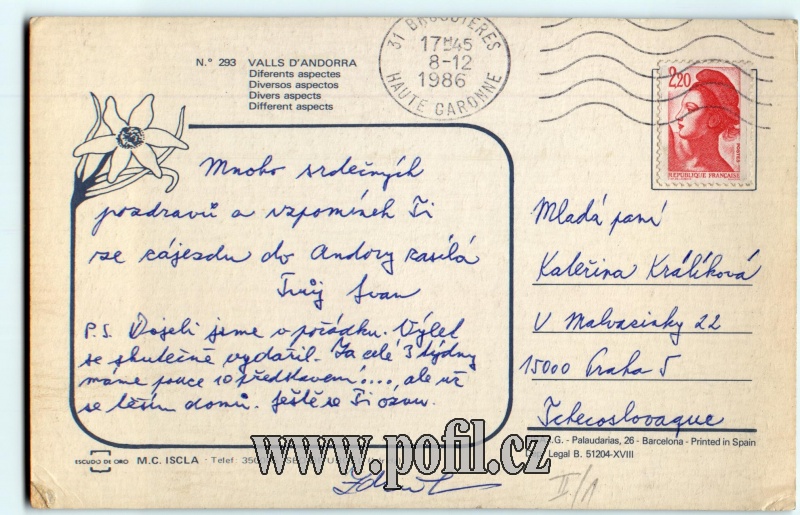 31 BROUDIERES
17H45
8-12
1986
HAUTE GARONNE
N.° 293 VALLS D'ANDORRA
Diferents aspectes
Diversos aspectos
Divers aspects
Different aspects
2,20
POSTES
REPUBLIQUE FRANÇAISE
Mnoho srdečných
pozdravů a vzpomínek Ti
ze zájezdu do Andory zasílá
Tvůj Ivan
P.S. Dojeli jsme v pořádku. Výlet
se skutečně vydařil. Za celé 3 týdny
máme pouze 10 představení..., ale už
se těším domů. Ještě se Ti ozvu.
Mladá paní
Kateřina Králíková
V Malvazinky 22
15000 Praha 5
Tchecoslovaque
ESCUDO DE ORO M.C. ISCLA · Telef. 350
.G. - Palaudarias, 26 - Barcelona - Printed in Spain
Legal B. 51204-XVIII
www.pofil.cz
II/1